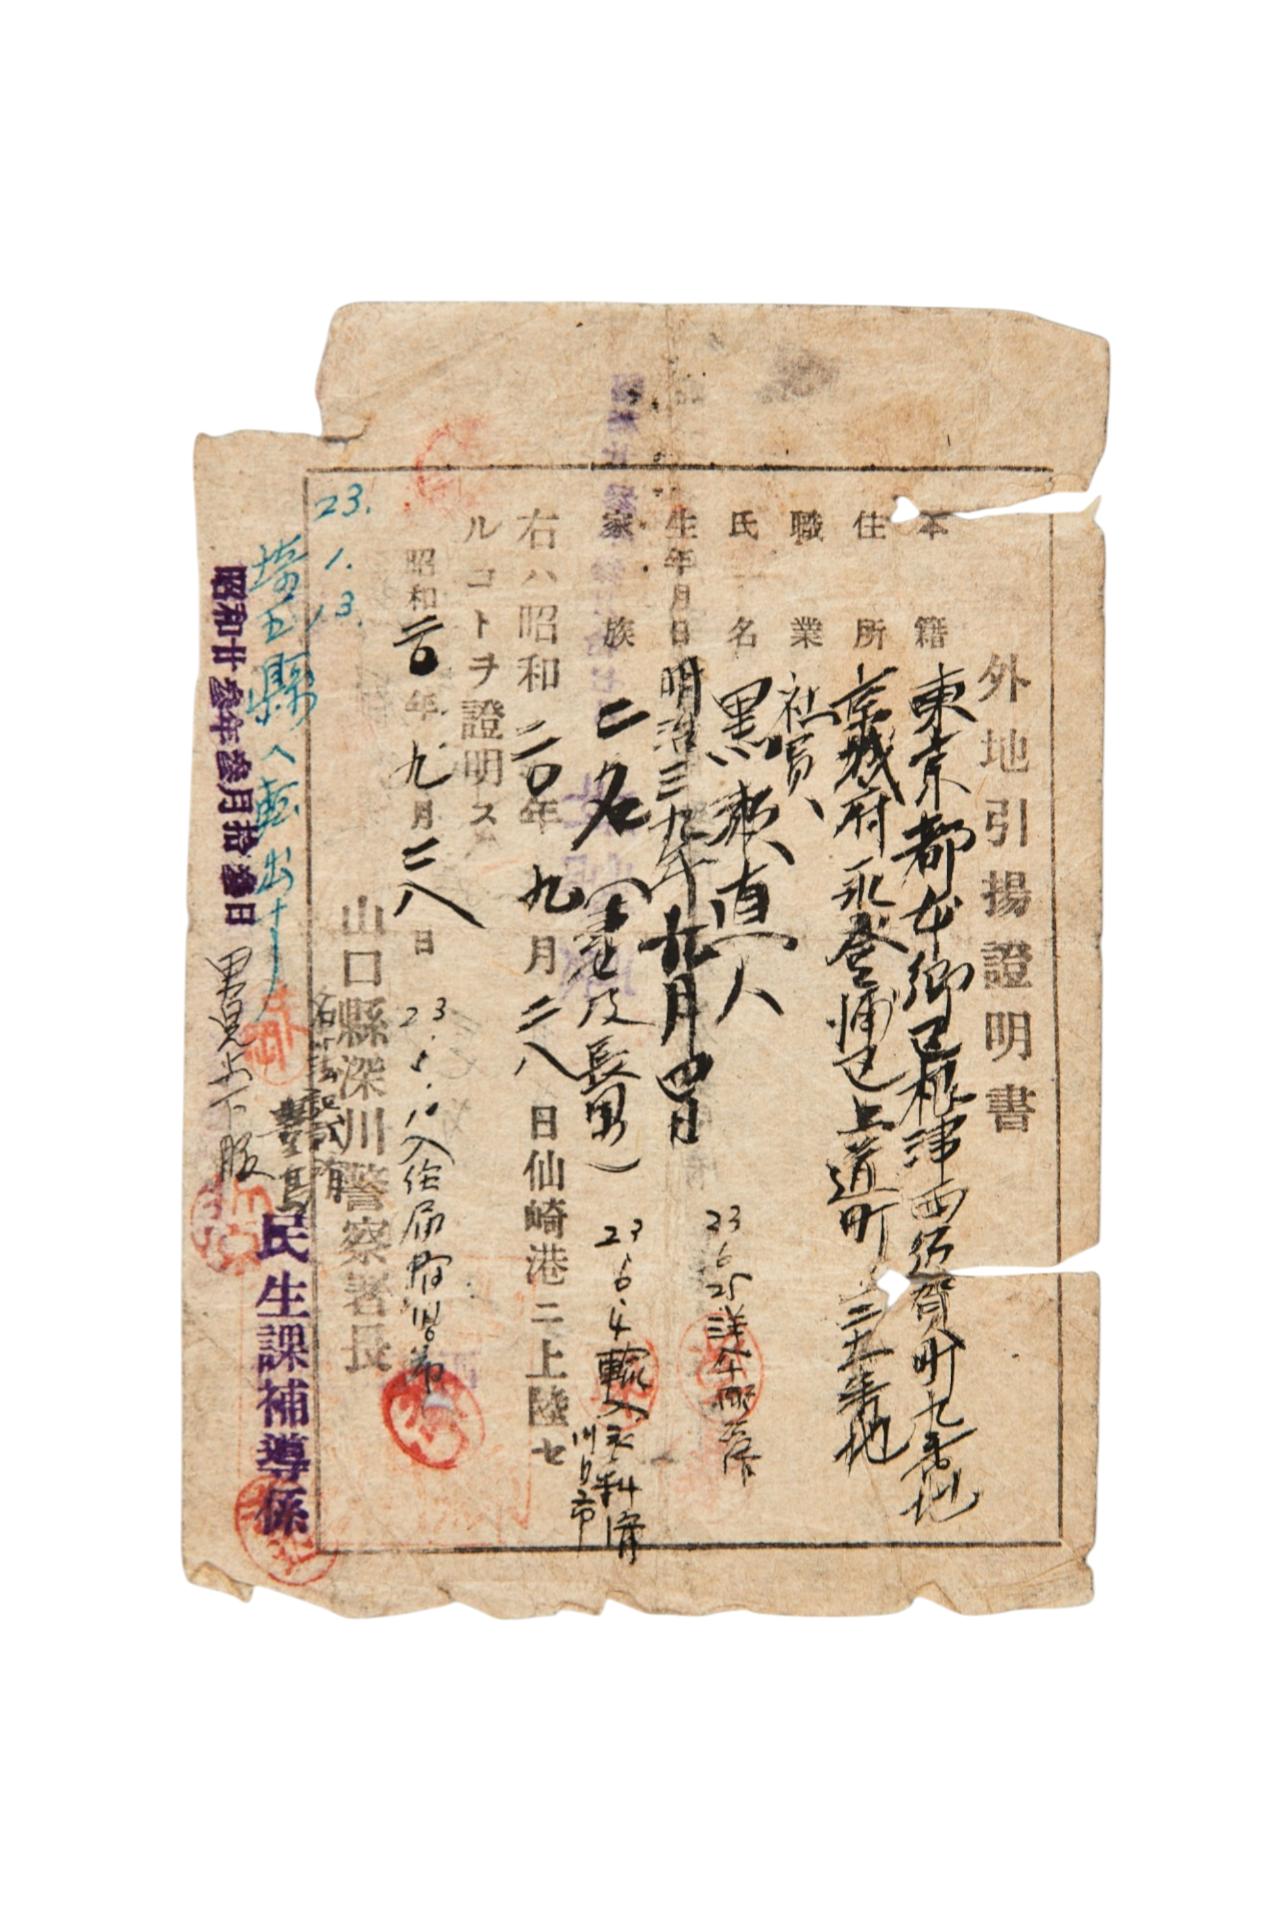 外地引揚證明書
本籍 東京都本郷区根津西須賀町九番地
住所 京城府永登浦区上道町 三十一番地
職業 社員
氏名 黒瀬直人
生年月日 明治三九年九月四日
家族 二名(妻及長男)
右ハ昭和二〇年九月二八日仙崎港ニ上陸セ
ルコトヲ證明ス
昭和二〇年九月二八日
山口縣深川警察署長
23.6.25
23.6.4 轉入
川口市
23.1.10
23.1.13.
埼玉縣へ転出
昭和廿叁年叁月拾叁日
男児上下服
民生課補導係